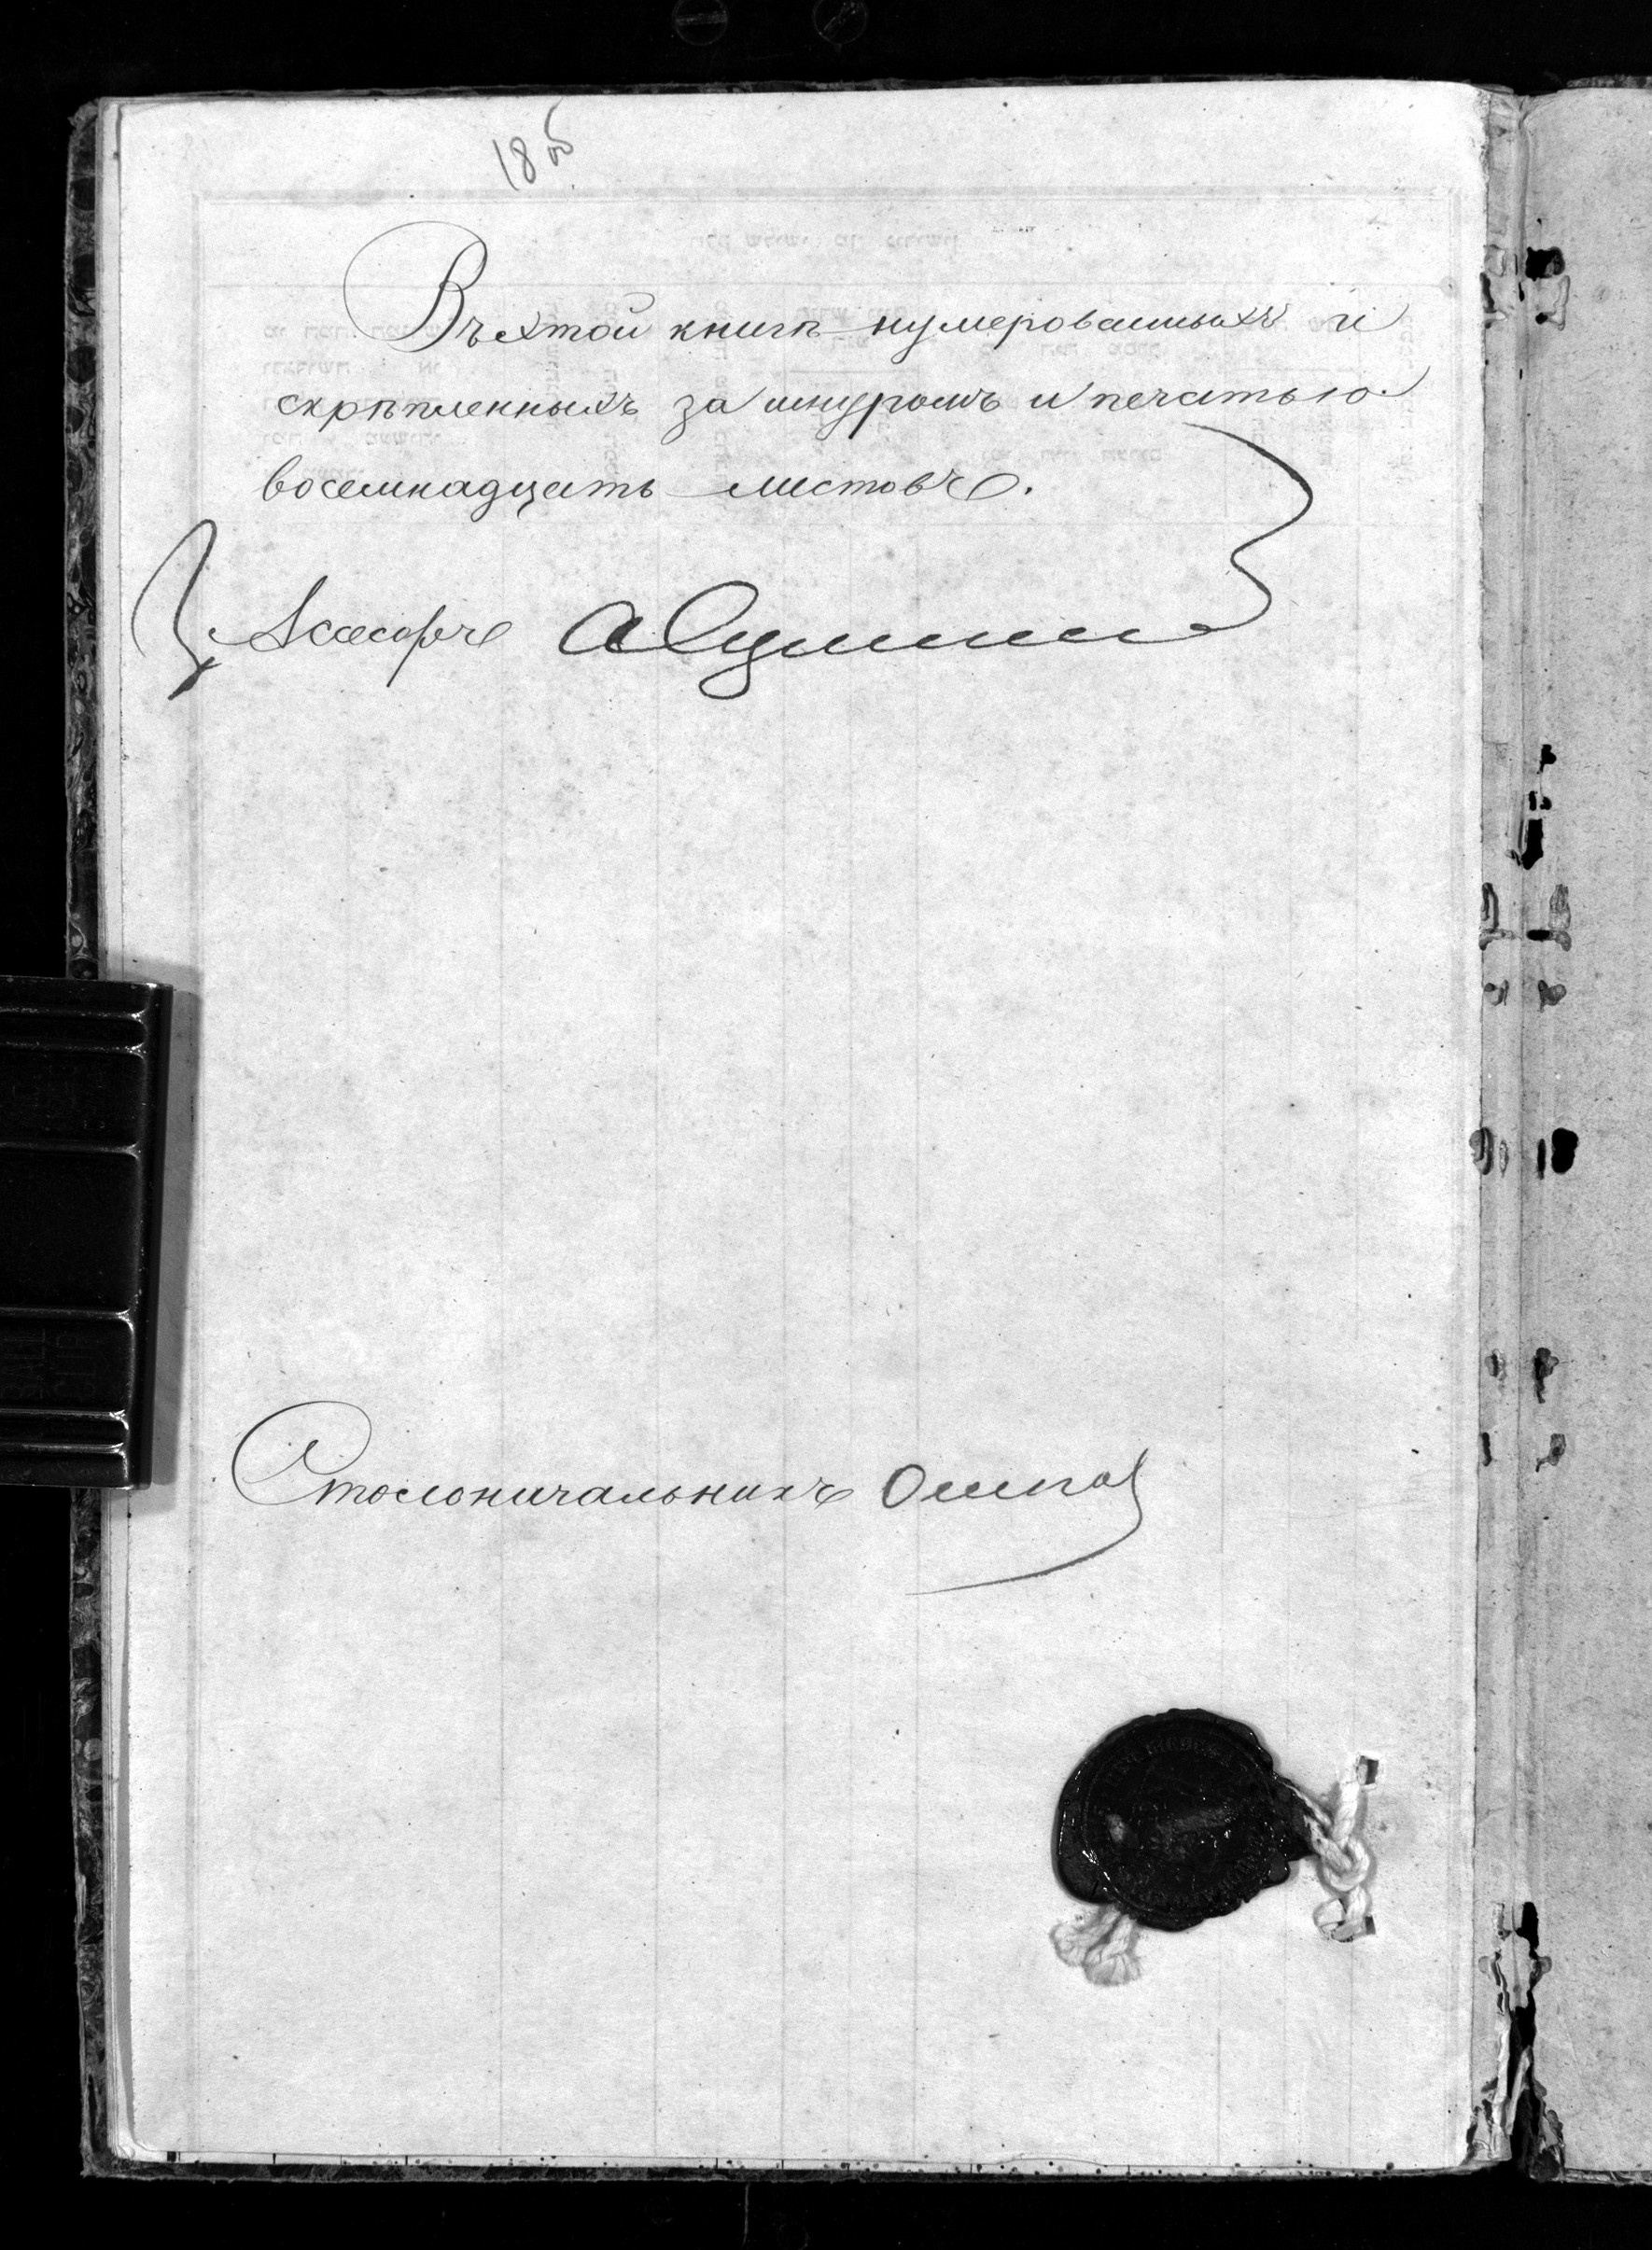 18 об
Въ этой книгѣ нумерованныхъ и
скрѣпленныхъ за шнуромъ и печатью
восемнадцать листовъ.
Асесоръ
Столоначальникъ